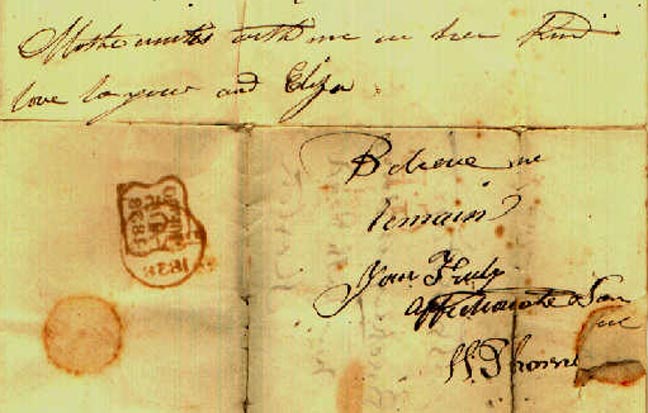 Mother unites with me in her kind
love to your and Eliza
Believe me
remain
Your Truly
affectionate Son
W. Thorne
1828